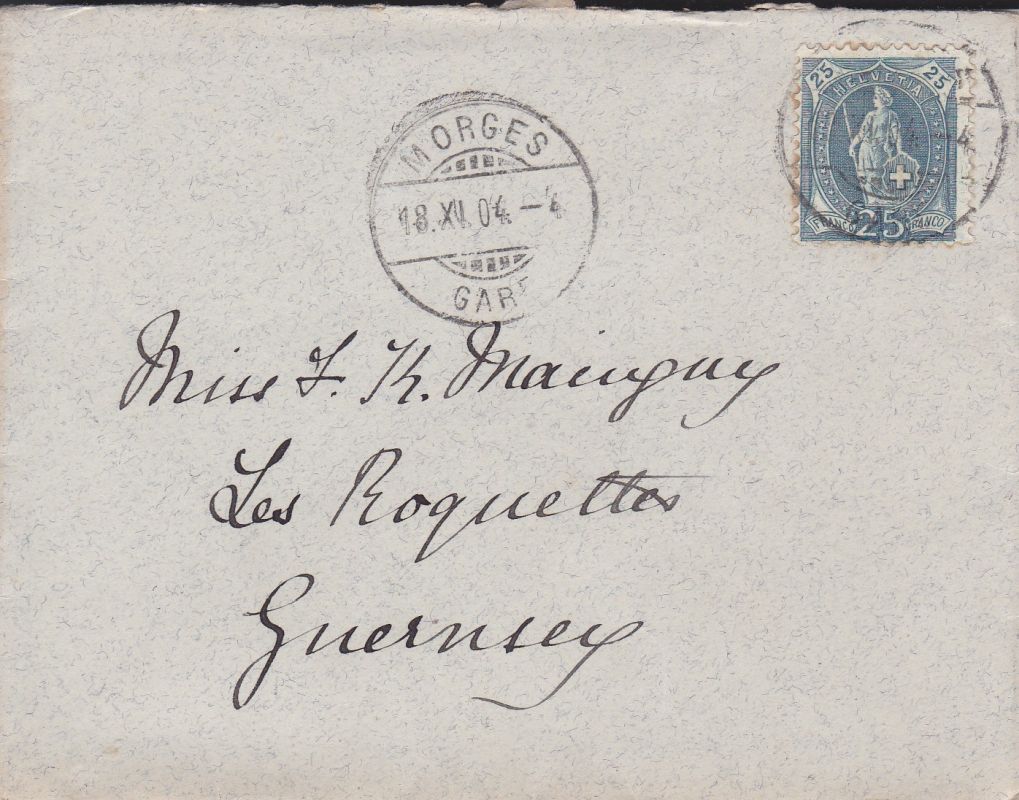 MORGES
18.XII.04.-4
GARE
25 HELVETIA 25
FRANCO 25 FRANCO
Miss F. K. Mauguy
Les Roquettes
Guernsey